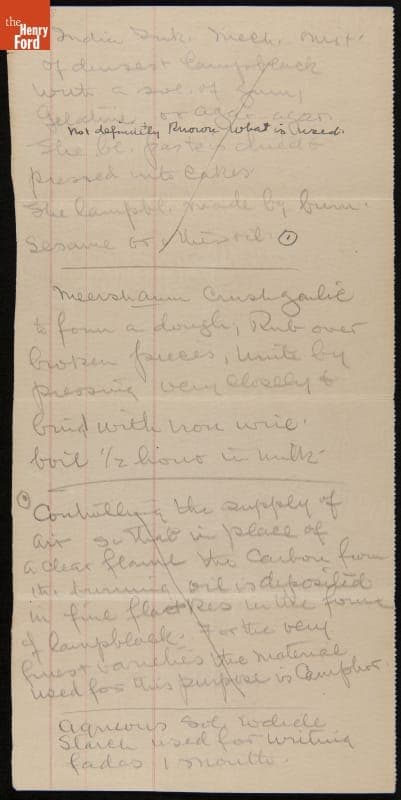 the
Henry
Ford
India Ink. Mech. mixt.
of densest lampblack
with a sol. of gum,
Gelatine or agar agar
not definitely Known what is used.
The bl. paste is dried &
pressed into cakes
The lampbl. made by burn.
Sesame or oil. 1
Meershaum Crush garlic
to form a dough, Rub over
broken pieces, unite by
pressing very closely &
bind with iron wire.
boil 1/2 hour in milk.
Controlling the supply of
air so that in place of
a clear flame the Carbon from
the burning oil is deposited
in fine flakes in the form
of lampblack. For the very
finest varieties the material
used for this purpose is Camphor.
Aqueous Sol. Iodide
Starch used for writing
fades 1 month.